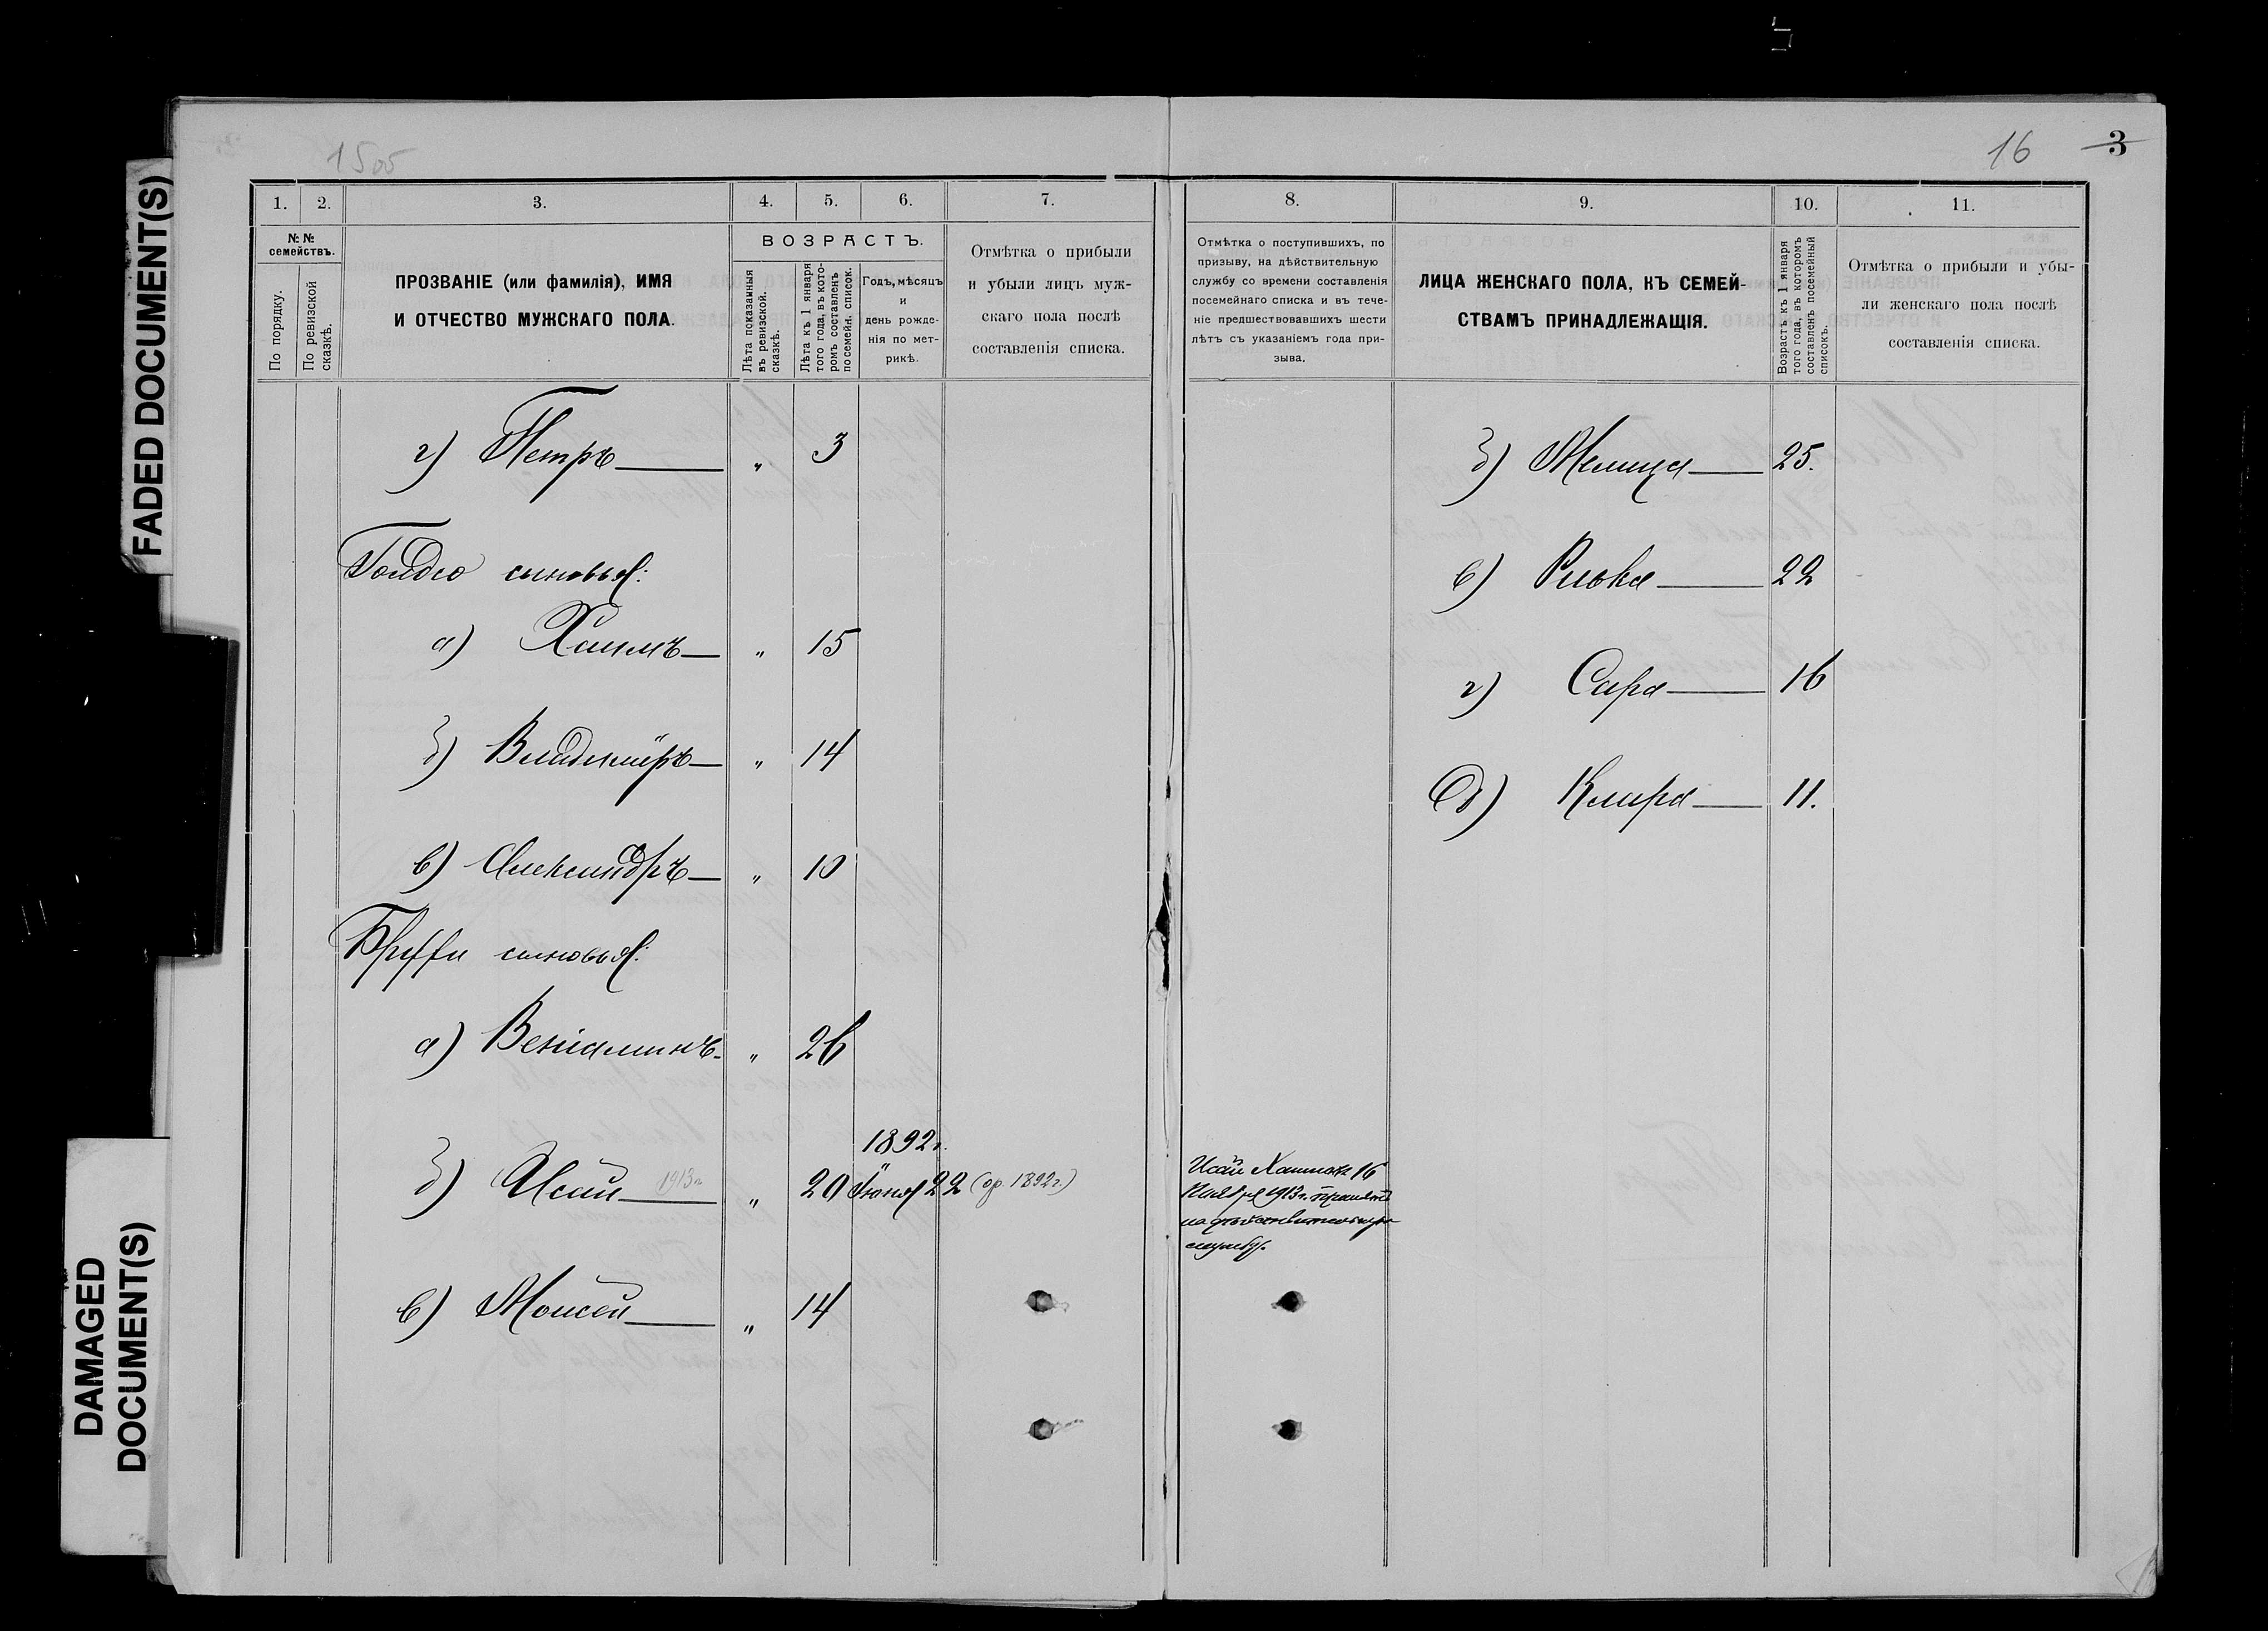 FADED DOCUMENT(S)
DAMAGED
DOCUMENT(S)
1505
16 3
1. 2. 3. 4. 5. 6. 7.
№ №
семействъ.
По порядку.
По ревизской
сказкѣ.
ПРОЗВАНІЕ (или фамилія), ИМЯ
И ОТЧЕСТВО МУЖСКАГО ПОЛА.
ВОЗРАСТЪ.
Лѣта показанныя
въ ревизской.
сказкѣ.
Лѣта къ 1 января
того года, въ кото-
ромъ составленъ
посемейн. список.
Годъ, мѣсяцъ
и
день рожде-
нія по мет-
рикѣ.
Отмѣтка о прибыли
и убыли лицъ муж-
скаго пола послѣ
составленія списка.
г) Петръ " 3
сыновья:
а) Хаимъ " 15
б) Владиміръ " 14
в) Александръ " 10
сыновья:
а) Веніаминъ " 26
1892г.
б) Исай 1913г " 20 Іюня 22 (ор. 1892г.)
в) Моисей " 14
8. 9. 10. 11.
Отмѣтка о поступившихъ, по
призыву, на дѣйствительную
службу со времени составленія
посемейнаго списка и въ тече-
ніе предшествовавшихъ шести
лѣтъ съ указаніемъ года при-
зыва.
ЛИЦА ЖЕНСКАГО ПОЛА, КЪ СЕМЕЙ-
СТВАМЪ ПРИНАДЛЕЖАЩІЯ.
Возрастъ къ 1 января
того года, въ которомъ
составленъ посемейный
списокъ.
Отмѣтка о прибыли и убы-
ли женскаго пола послѣ
составленія списка.
б) 25.
в) Ривка 22
г) Сара 16
д) Клара 11.
Исай 16
Ноября 1913г. принятъ
на дѣйствительную
службу.